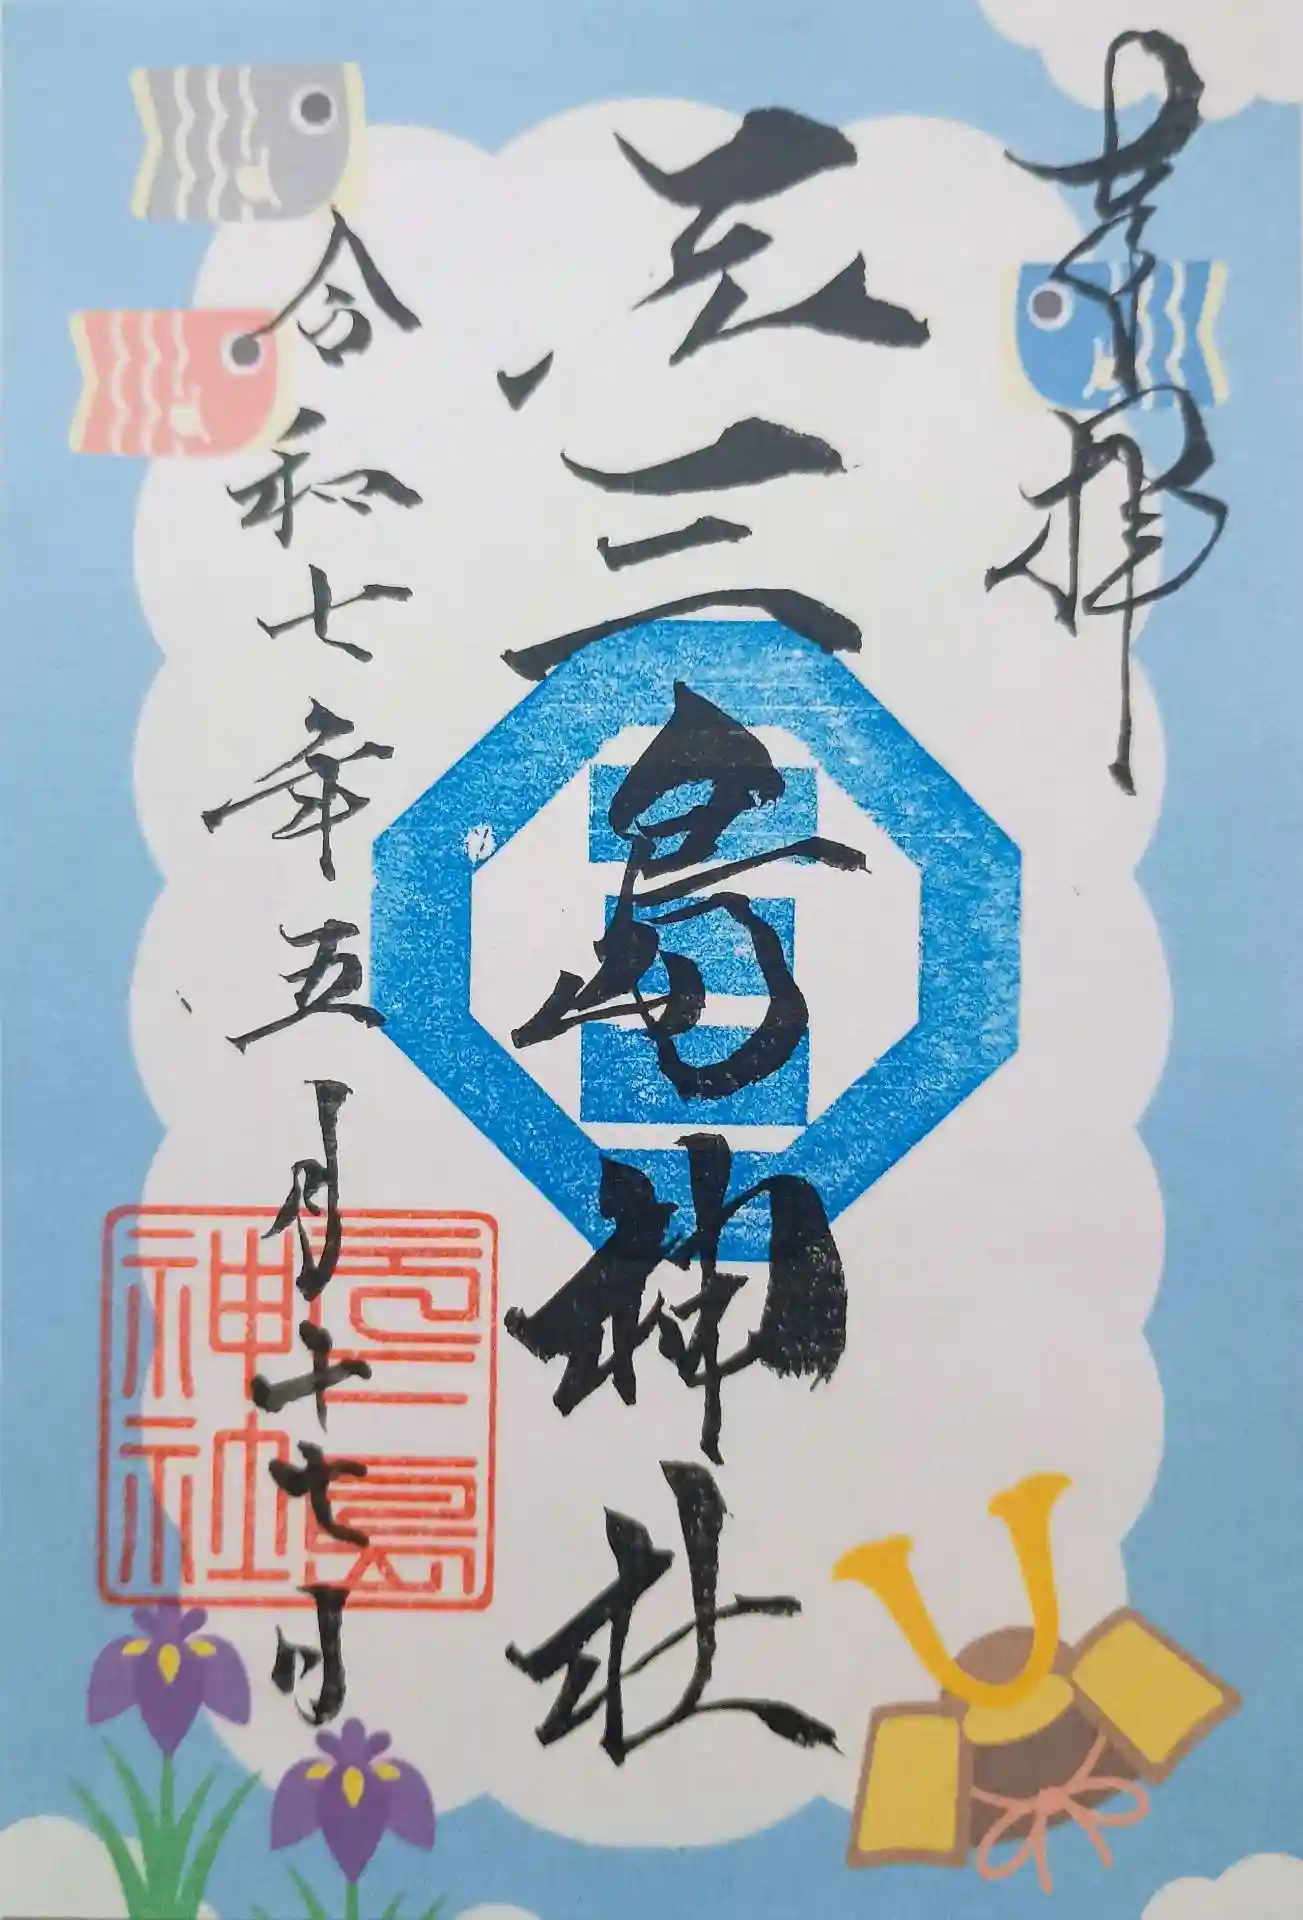 奉拝
元三島神社
令和七年五月十七日
元三島
神社